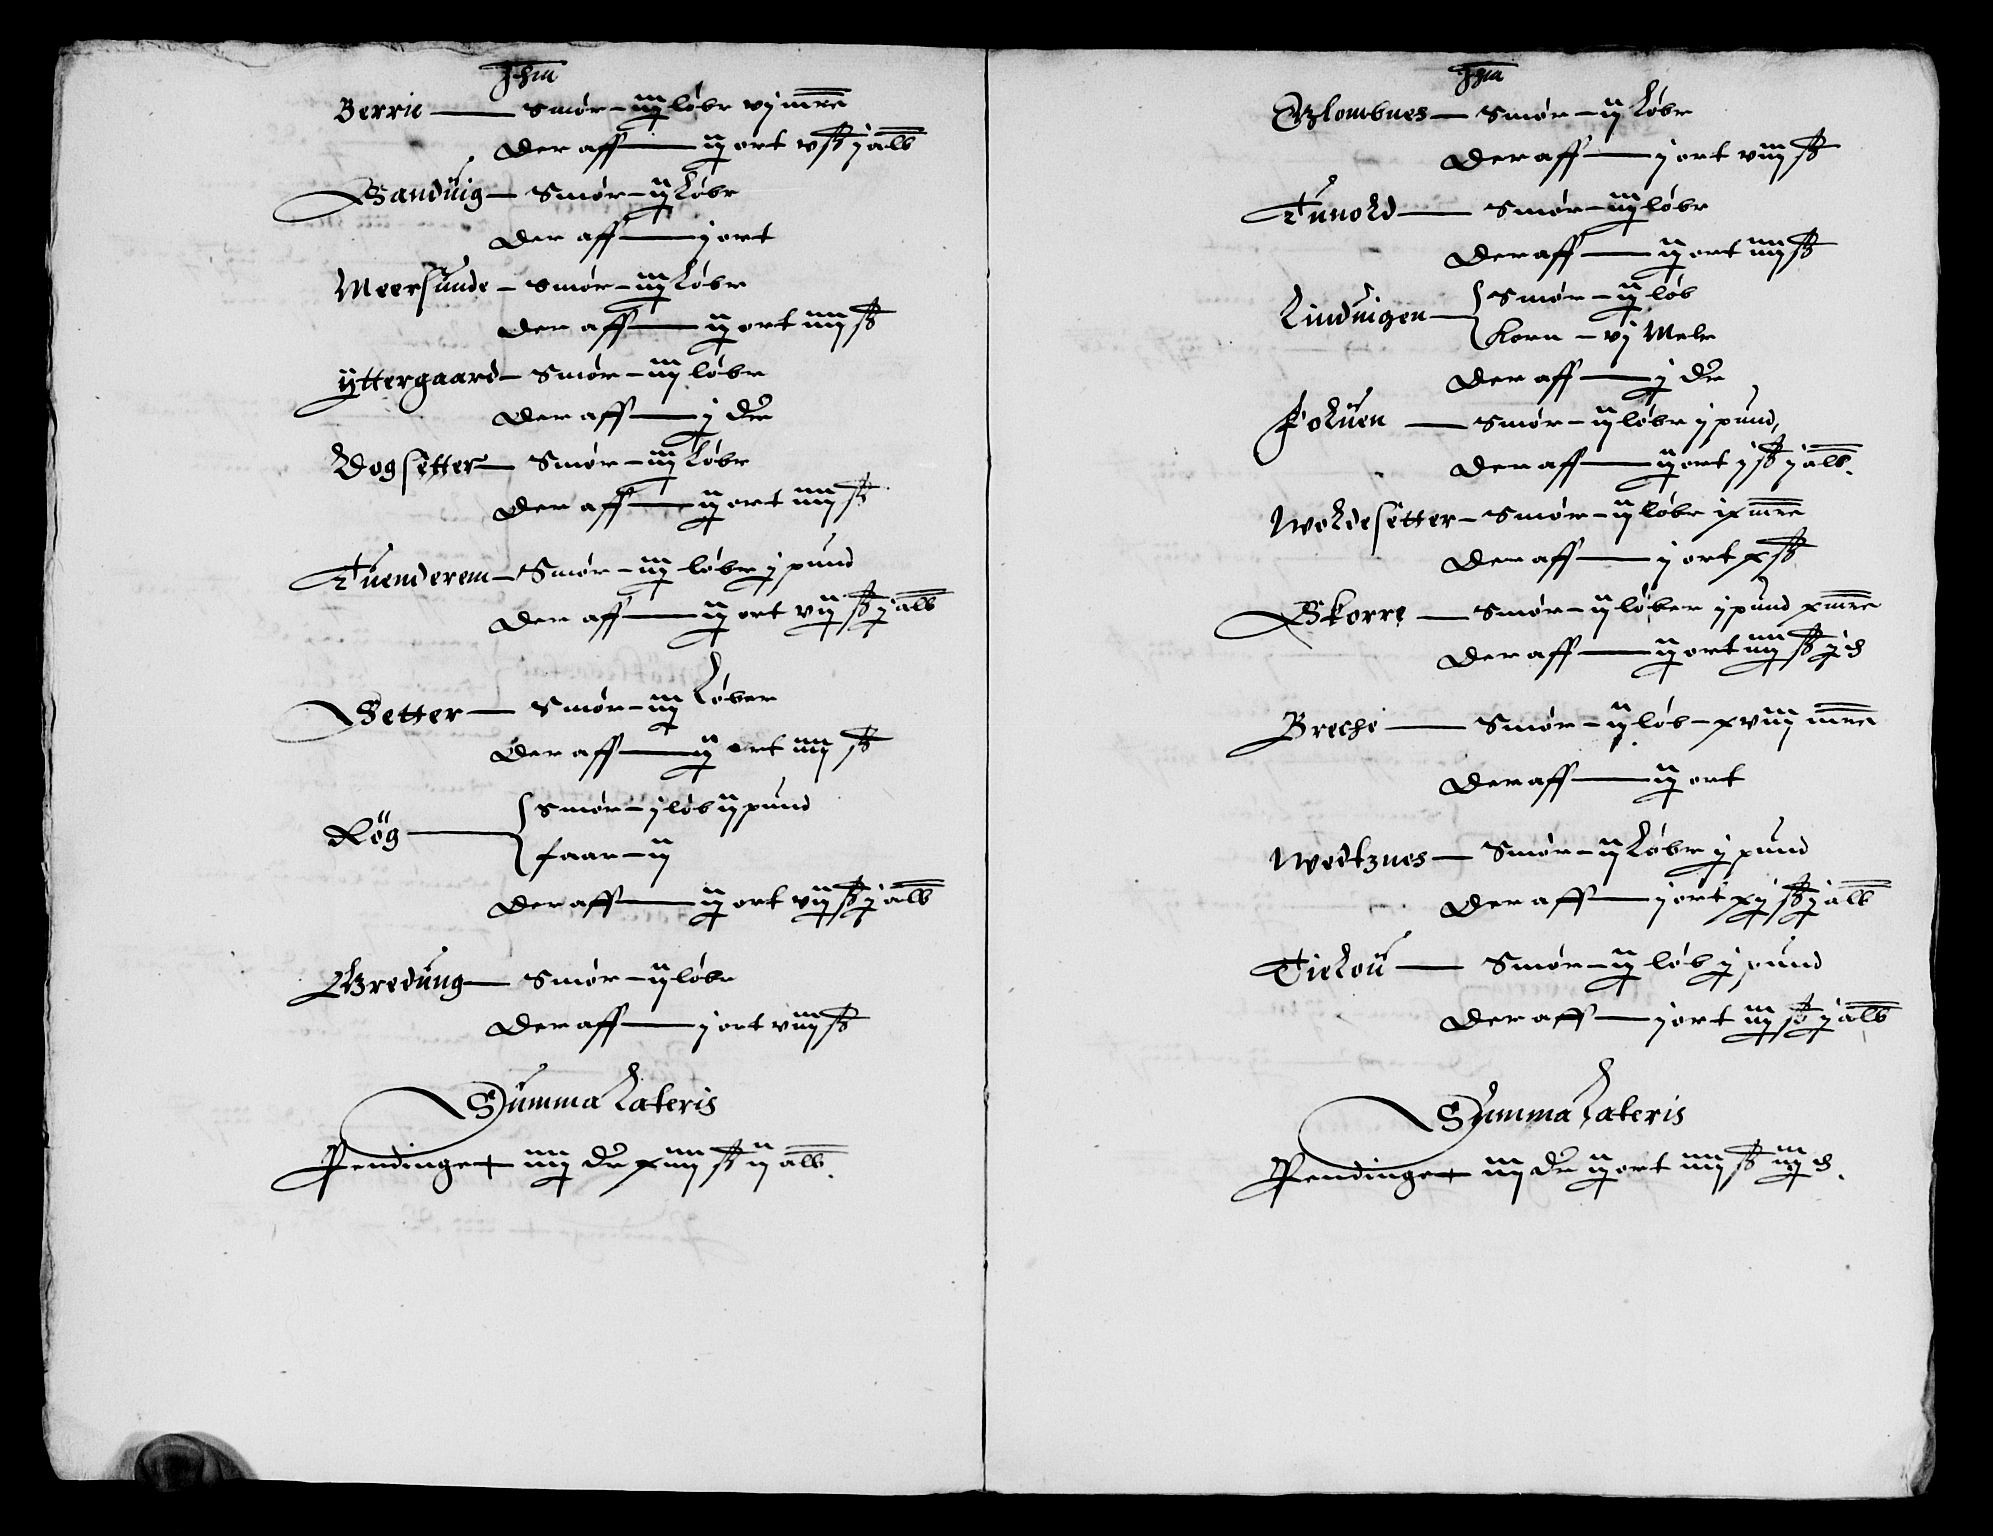 Jhm
Berrie — Smør – iij løbe vj mrc
Der aff — ij ort v ß j alb
Sanduig — Smør – ij Løbe
Der aff — j ort
Meersunde – Smør – iij Løbe
Der aff — ij ort iiij ß
Yttergaard – Smør – iij løbe
Der aff — j dr
Vogsetter — Smør – iij Løbe
Der aff — ij ort iiij ß
Tuenderem – Smør – iij løbe j pund
Der aff — ij ort vij ß j alb
Setter — Smør – iij Løber
Der aff — ij ort iiij ß
Røg — Smør – j løb ij pund
faar – ij
Der aff — ij ort vij ß j alb
Bredung — Smør – ij løbe
Der aff — j ort viij ß
Summa Lateris
Pendinge + iiij dr xiiij ß ij alb.
Jhm
Blombnes — Smør – ij Løbe
Der aff — j ort viij ß
Tunold — Smør – iij løbe
Der aff — ij ort iiij ß
Linduigen — Smør – ij løb
Korn – vj Mele
Der aff — j dr
Foluen — Smør – ij løbe j pund,
Der aff — ij ort j ß j alb.
Woldesetter – Smør – ij løbe ix mrc
Der aff — j ort x ß
Skorre — Smør – ij løber j pund x mrc
Der aff — ij ort iiij ß j d
Breche — Smør – ij løb – xviij mrc
Der aff — ij ort
Wedtznes — Smør – ij Løbe j pund
Der aff — j ort xj ß j alb
Tielou — Smør – ij løb j pund
Der aff — j ort iij ß j alb
Summa Lateris
Pendinge + iiij dr ij ort iiij ß iij d.